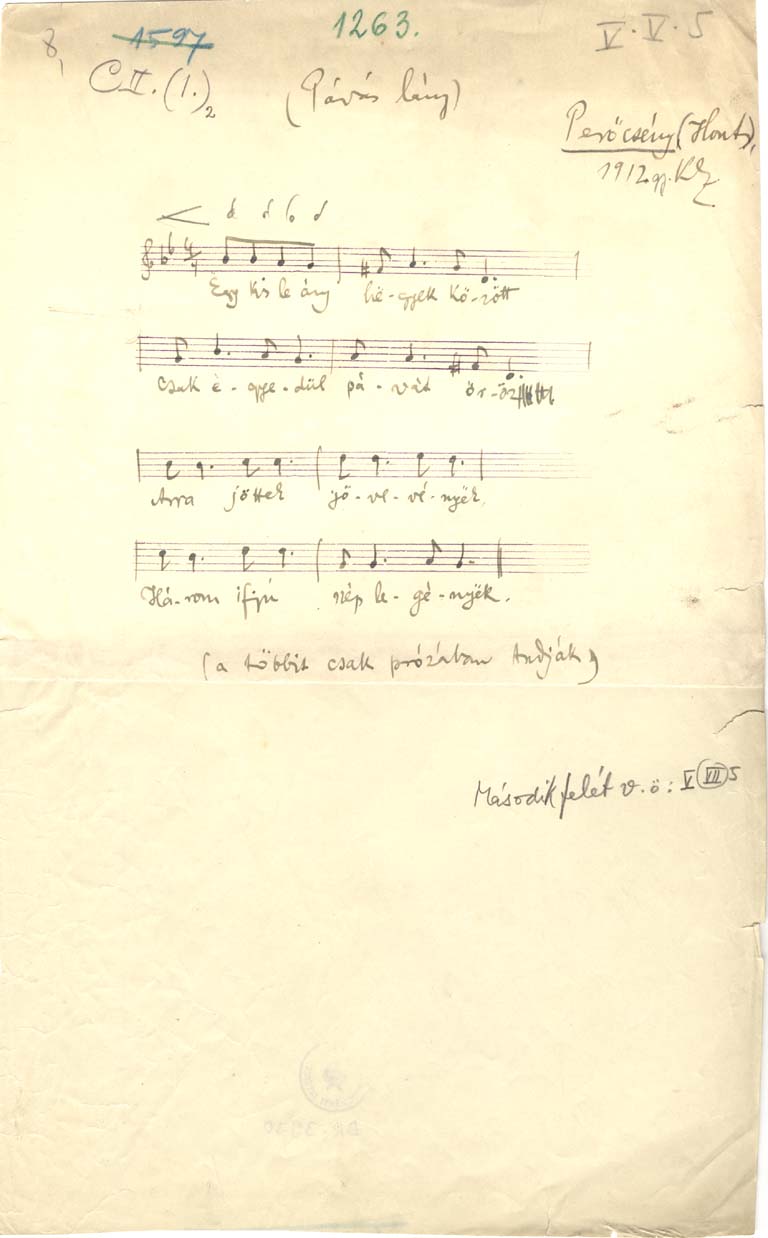 8,
1597
1263.
V. V. 5
C II. (1.)2
(Pávás lány)
Perőcsény (Hont),
1912 gy. KZ.
Egy kis leány hë-gyek kö-zött
Csak ë-gye-dül pá-vát őr-öz
Arra jöttek jö-ve-vé-nyëk,
Há-rom ifjú nép le-gé-nyëk.
(a többit csak prózában tudják)
Második felét v. ö: V VII 5